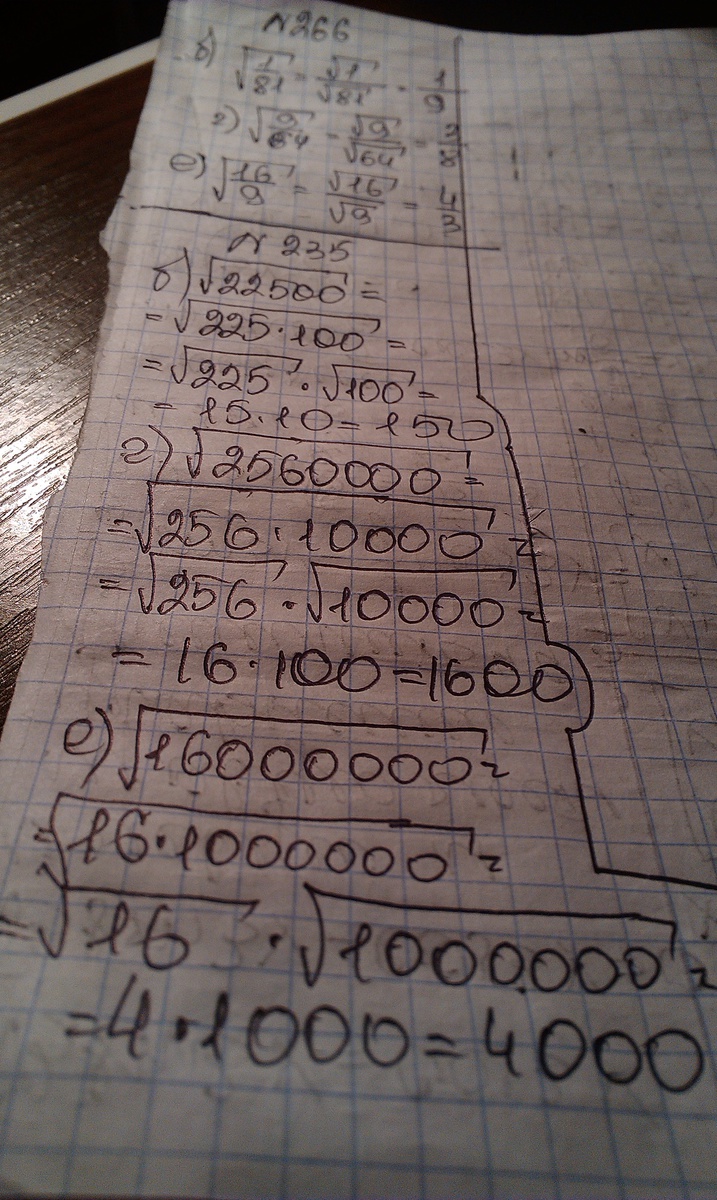 №266
б) √(1/81) = √1/√81 = 1/9
г) √(9/64) = √9/√64 = 3/8
е) √(16/9) = √16/√9 = 4/3
№ 235
б) √22500 =
= √225·100 =
= √225 · √100 =
= 15·10 = 150
г) √2560000 =
= √256·10000 =
= √256 · √10000 =
= 16·100 = 1600
е) √16000000 =
= √16·1000000 =
= √16 · √1000000 =
= 4·1000 = 4000